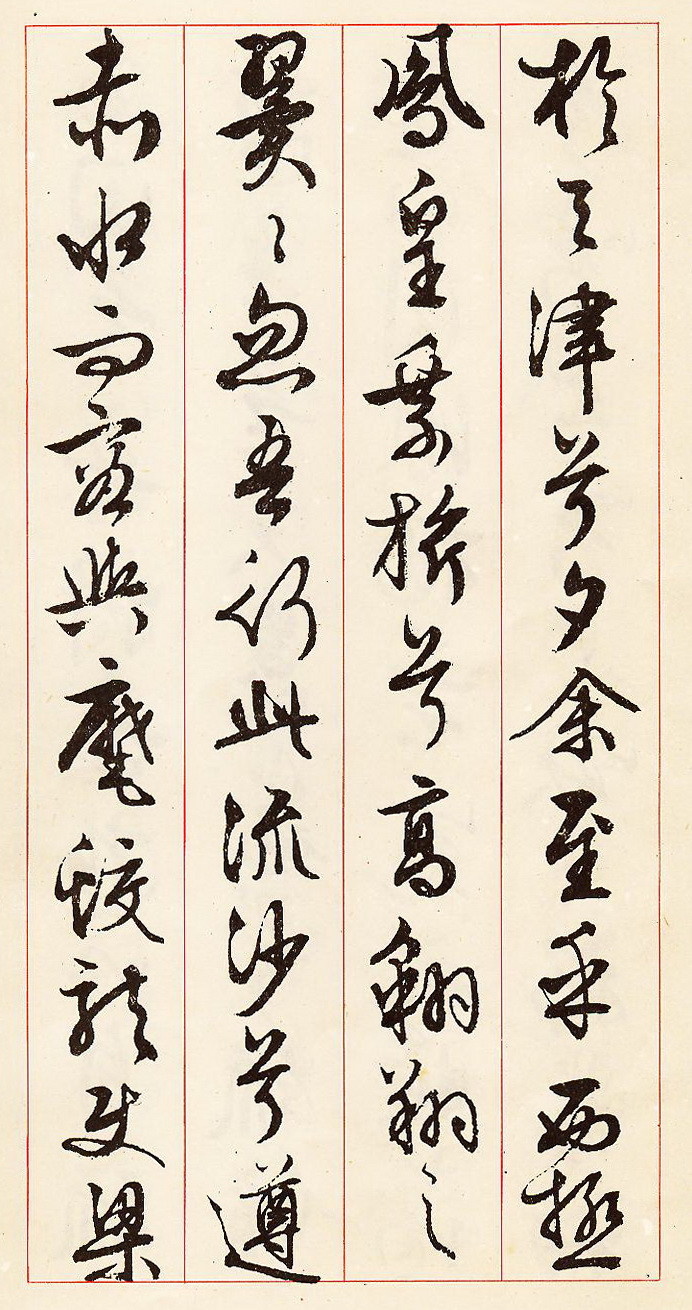 於天津兮夕余至乎西極
鳳皇承旂兮高翱翔之
翼〻忽吾行此流沙兮遵
赤水而容與麾蛟龍使梁